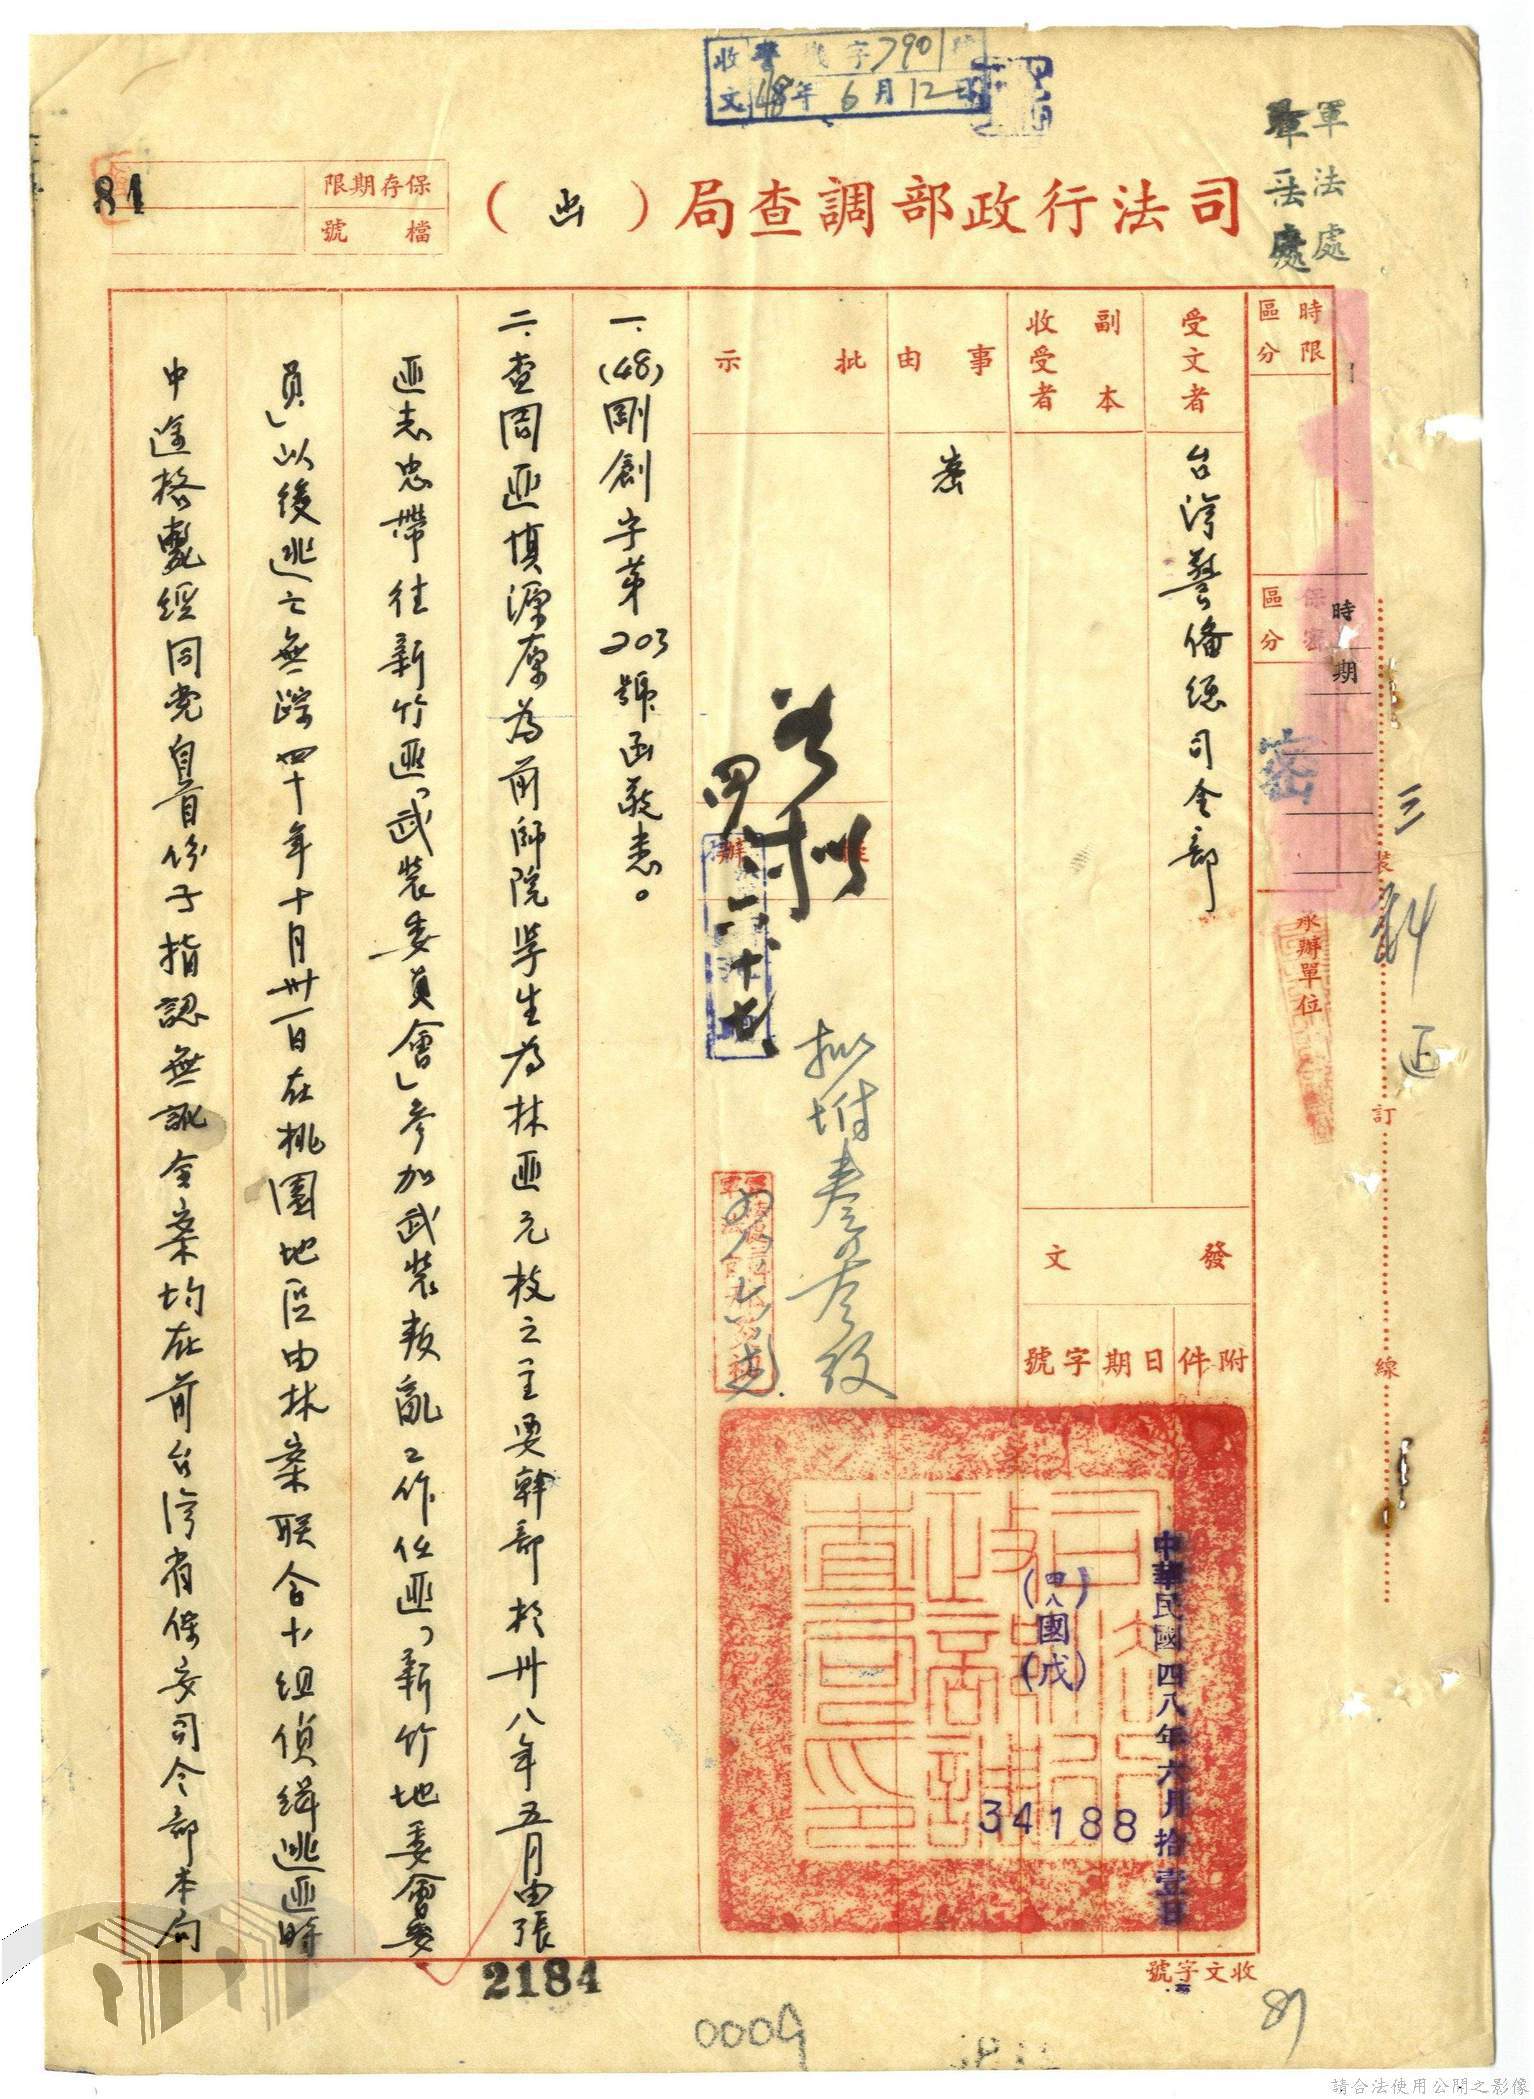 收文 警 字7901號
48年6月12日
軍法處
軍法處
司法行政部調查局（函）
保存期限
檔號
81
時限區分
保密區分
密
時期
承辦單位
裝
訂
線
三科
受文者
台湾警备総司令部
副本收受者
事由
密
批示
擬辦
發文
附件
日期
字號
中華民國四八年六月拾壹日
（四八）國（戊）
34188
一、(48)剛創字第203號函敬悉。
二、查周匪慎源原為前師院学生為林匪元枝之主要幹部於卅八年五月由張
匪志忠帶往新竹匪「武裝委員會」參加武裝叛亂工作任匪「新竹地委會委
員」以後逃亡無踪四十年十月卅一日在桃園地區由林案联合小組偵緝逃匪時
中途格斃經同党自首份子指認無訛全案均在前台湾省保安司令部本局
收文字號
2184
0009
請合法使用公開之影像